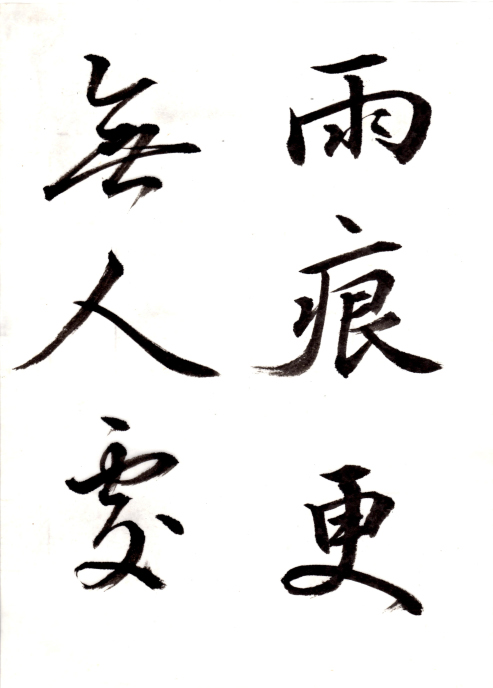 雨痕更
無人處